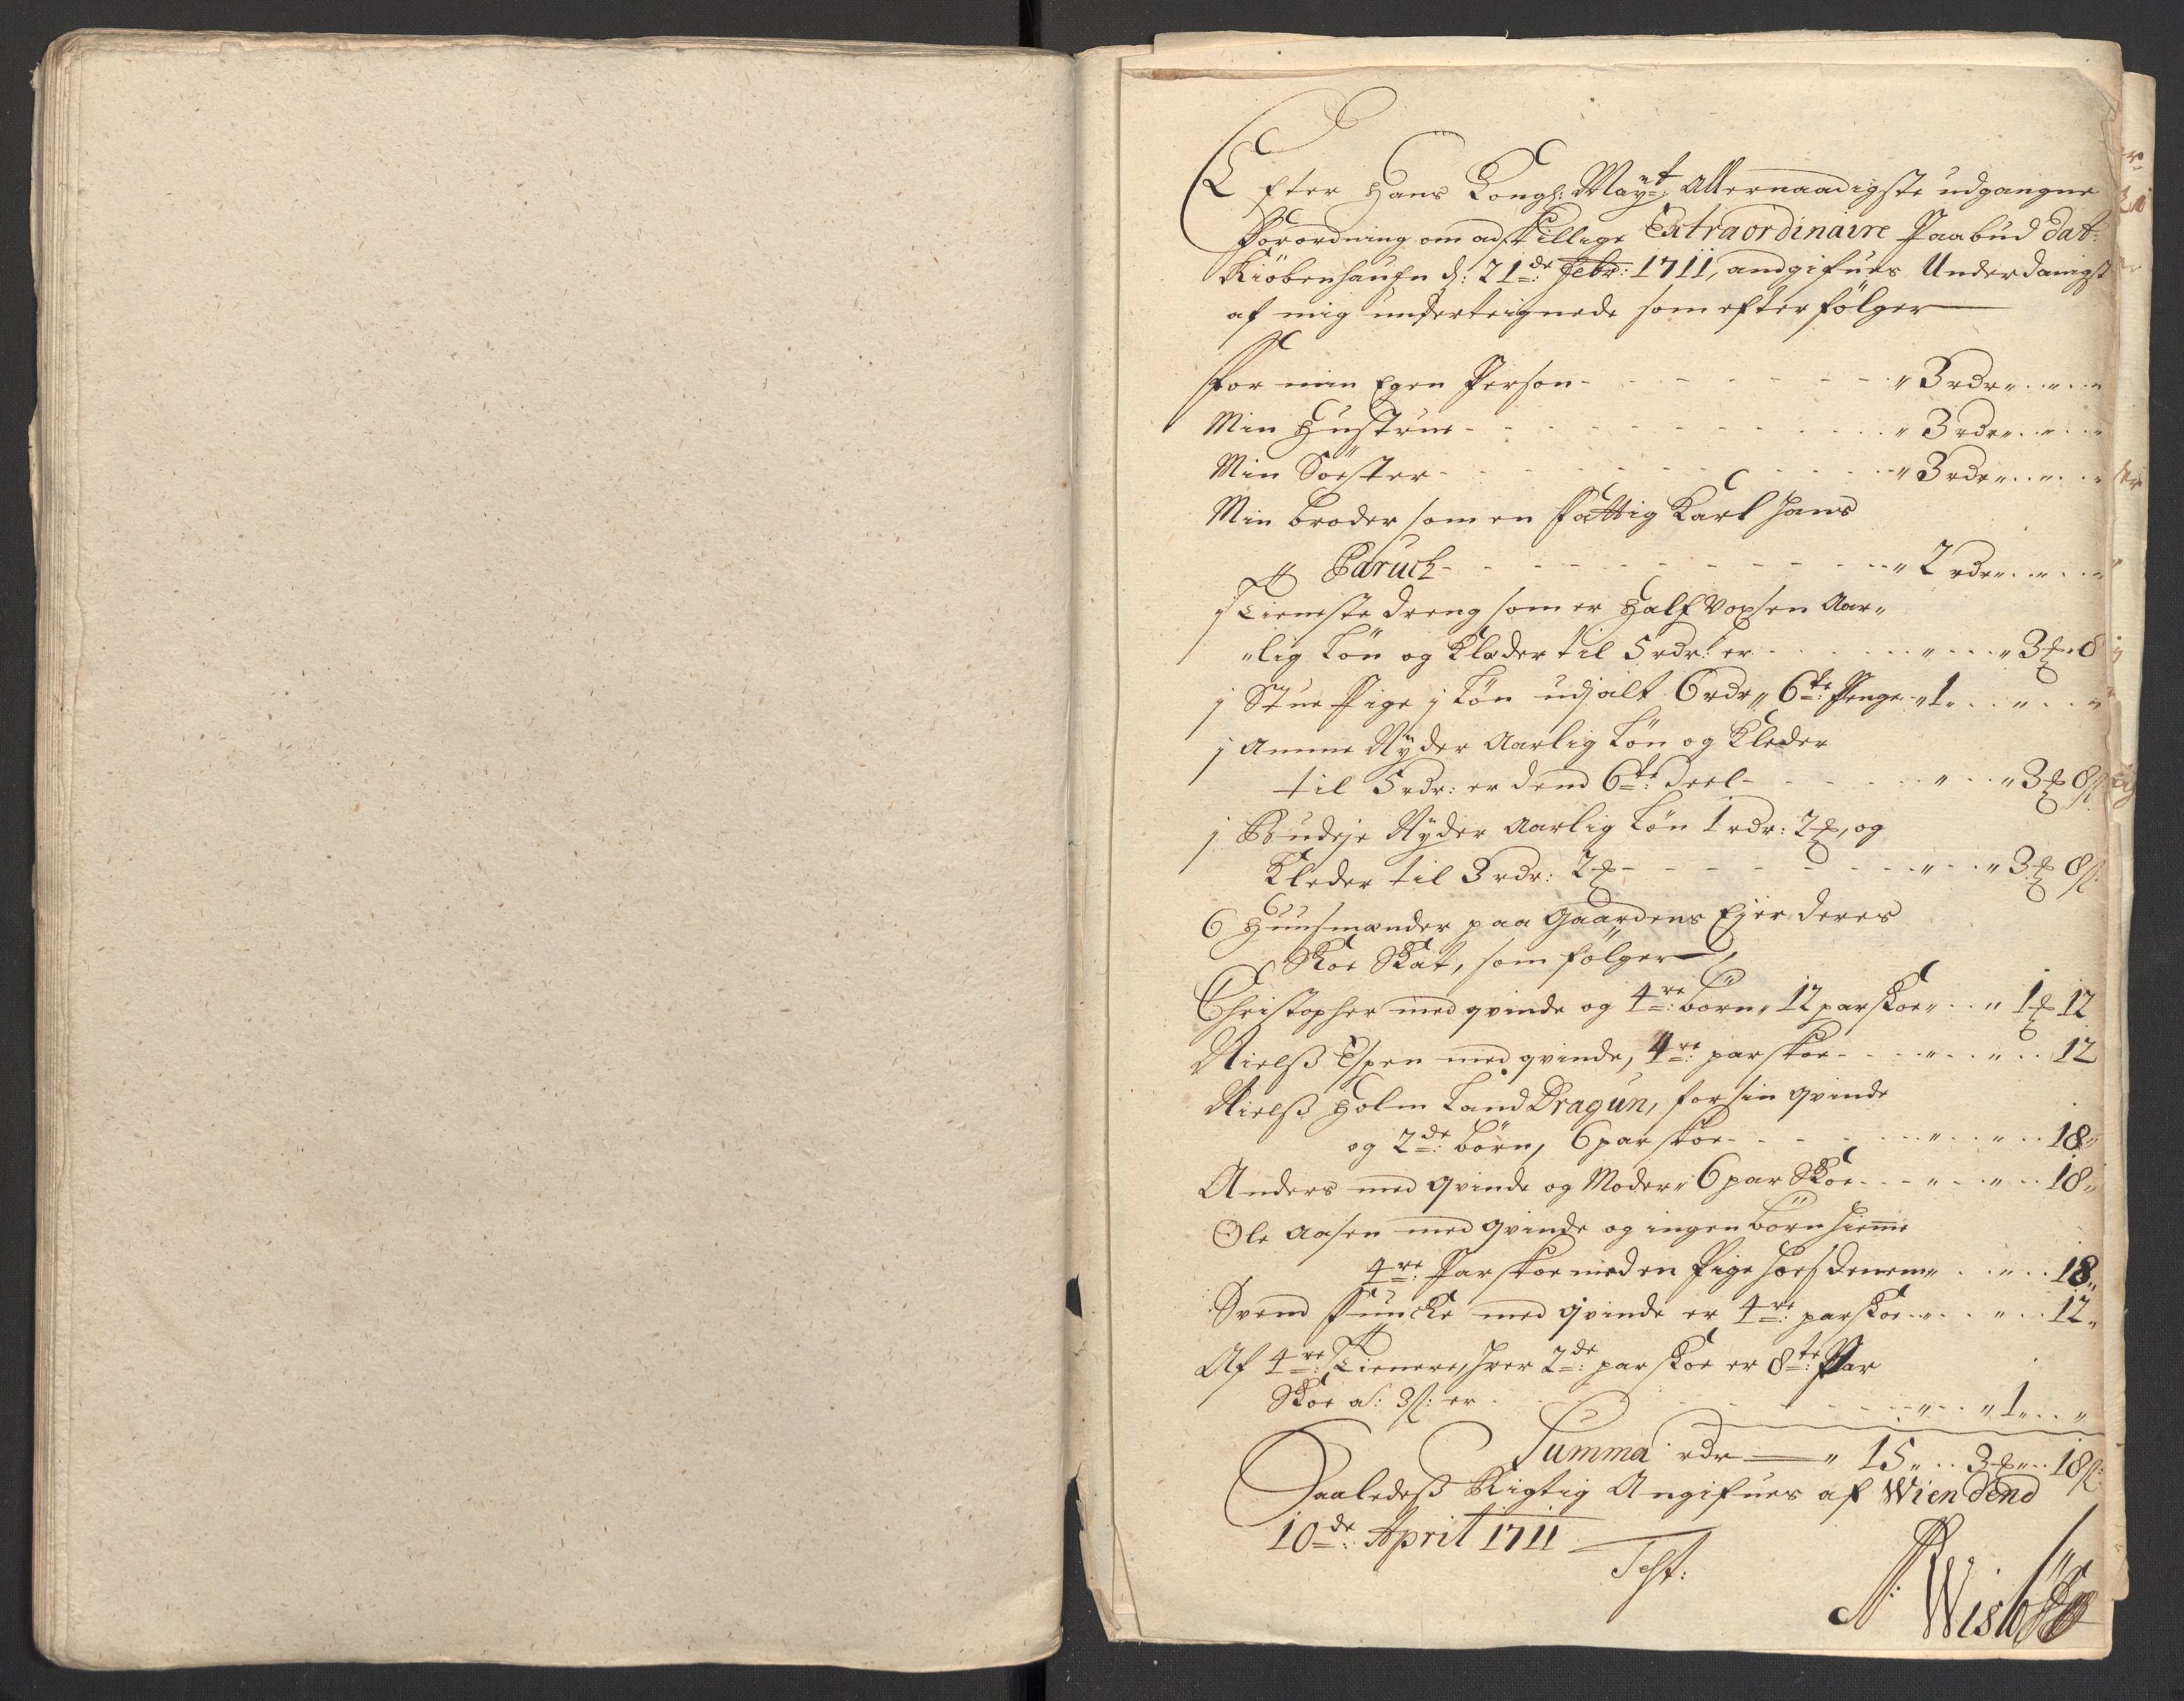 Efter Hans Kongl: May:tt Allernaadigste udgangne
Forordning om adskillige Extraordinaire Paabud dat:
Kiöbenhaufn d: 21de: Febr: 1711, andgifues Underdanigst
af mig underteignede som efterfölger
For min Egen Person - - - " 3 rdr " . . " . . "
Min Hustrue - - - " 3 rdr " . . " . . "
Min Söster - - - " 3 rdr " . . " . . "
Min broder som en Fattig Karl Hans
Baruch - - - " 2 rdr " . . " . . "
1 Tieneste dreng som er Half Voxsen Aar"
"lig Lön og Klæder til 5 rdr: er - - - " . . " 3 . 8
1 Stue Pige j Lön udj alt 6 rdr " 6te: Penge " 1 . . " . . "
1 Amme Nyder Aarlig Lön og Kleder
til 5 rdr: er dend 6te: deel - - - " . . " 3 8 s
1 Budeje Nyder Aarlig Lön 1 rdr: 2, og
Kleder til 3 rdr: 2 - - - " . . " 3 8 s
6 Huusmænder paa Gaardens Ejer deres
Skoe Skat, som fölger
Christopher med qvinde og 4re: börn " 12 par skoe " . . " 1 12
Nielß Espen med qvinde, 4re: par skoe - - - " . . " . . 12
Nielß Holm Land Dragun, for sin qvinde
og 2de: börn, 6 par skoe - - - " . . " . . 18 "
Anders med qvinde og Moder " 6 par Skoe - - - " . . " . . 18 "
Ole Aasen med qvinde og ingen börn hieme
4re: Par skoe med en Pige hoes dennem " . . " . . 18 "
Svend Funcke med qvinde er 4re: par skoe " . . " . . 12 "
Af 4re: Tienere, hver 2de: par skoe er 8te: Par
Skoe a: 3 s: er - - - " . . " 1 . . "
Summa rdr — " 15 " . . 3 " . . 18 s
Saaledeß Rigtig Angifues af Wien dend
10de: April 1711
Test: